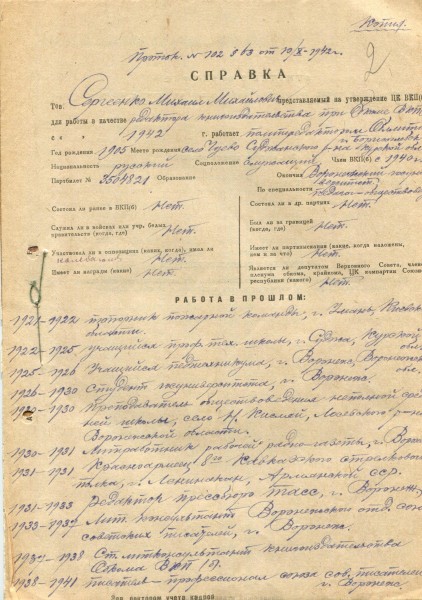 Копия.
Проток. № 102 8 вз от 19/X-1942 г.
2
СПРАВКА
Тов. Сергеенко Михаил Михайлович представляемый на утверждение ЦК ВКП(б)
для работы в качестве редактора книгоиздательства при
с « 1942 г. работает
Год рождения 1905 Место рождения село
Национальность русский Социальное Член ВКП(б) с 1940 г.
Партбилет № 3564821 Образование Окончил Воронежский
По специальности педагог-обществовед
Состоял ли ранее в ВКП(б) Нет. Состоял ли в др. партиях Нет.
Служил ли в войсках или учр. белых правительств (когда, где) Нет. Был ли за границей (когда, где) Нет.
Участвовал ли в оппозициях (каких, когда), имел ли колебания Нет. Имеет ли партвзыскания (какие, когда наложены, кем и за что) Нет.
Имеет ли награды (какие) Нет. Является ли депутатом Верховного Совета, членом пленума обкома, крайкома, ЦК компартии Союзн. республики (какого) Нет.
РАБОТА В ПРОШЛОМ:
1921–1922 топорник пожарной команды, г. Умань, Киевск.
области.
1922–1925 учащийся профтех. школы, г. Суджа, Курской обл.
1925–1926 Учащийся педтехникума, г. Воронеж, Воронежской обл.
1926–1930 Студент госуниверситета, г. Воронеж.
1929–1930 Преподаватель обществоведения неполной сред-
ней школы, село Н. Кисляй, Лосевского района
Воронежской области.
1930–1931 Литработник рабочей радио-газеты, г. Ворон
1931–1931 Красноармеец 8го Кавказского стрелкового
полка, г. Ленинакан, Армянской ССР.
1931–1933 Редактор прессбюро ТАСС, г. Воронеж.
1933–1937 Лит. консультант Воронежского отд. союза
советских писателей, г. Воронеж.
1937–1938 Ст. литконсультант книгоиздательства
Обкома ВКП(б).
1938–1941 писатель-профессионал союза сов. писателей
г. Воронеж.
Зав. сектором учета кадров